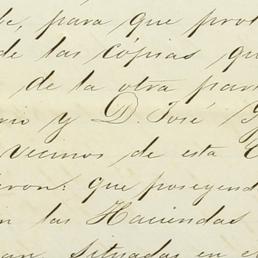 be, para que prot
de las cópias qu
de la otra par
rio y D. José
vecinos de esta C
eron: que poseyend
n las Haciendas
an, situadas en e